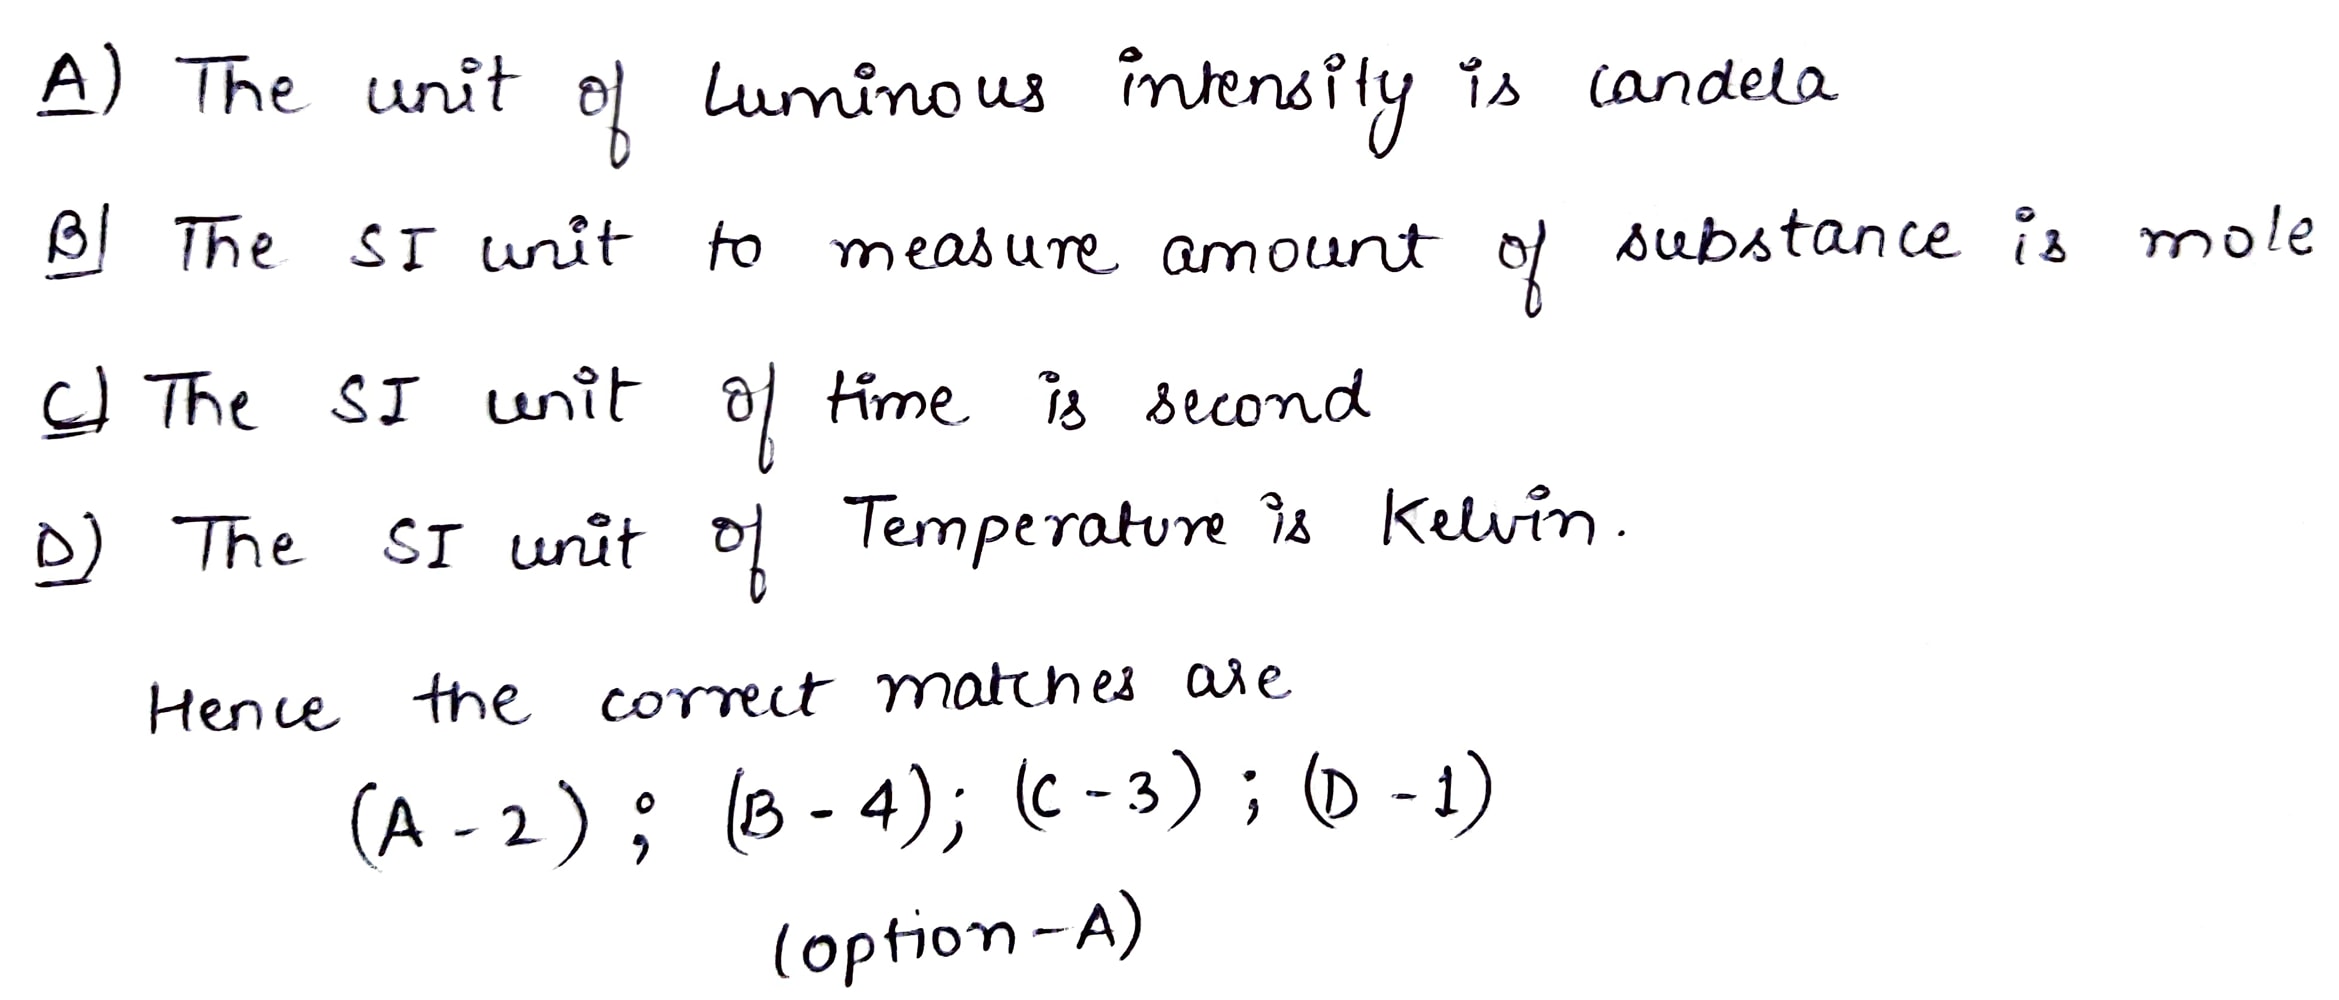 A) The unit of Luminous intensity is candela
B) The SI unit to measure amount of substance is mole
C) The SI unit of time is second
D) The SI unit of Temperature is Kelvin.
Hence the correct matches are
(A - 2) ; (B - 4); (C - 3) ; (D - 1)
(option - A)